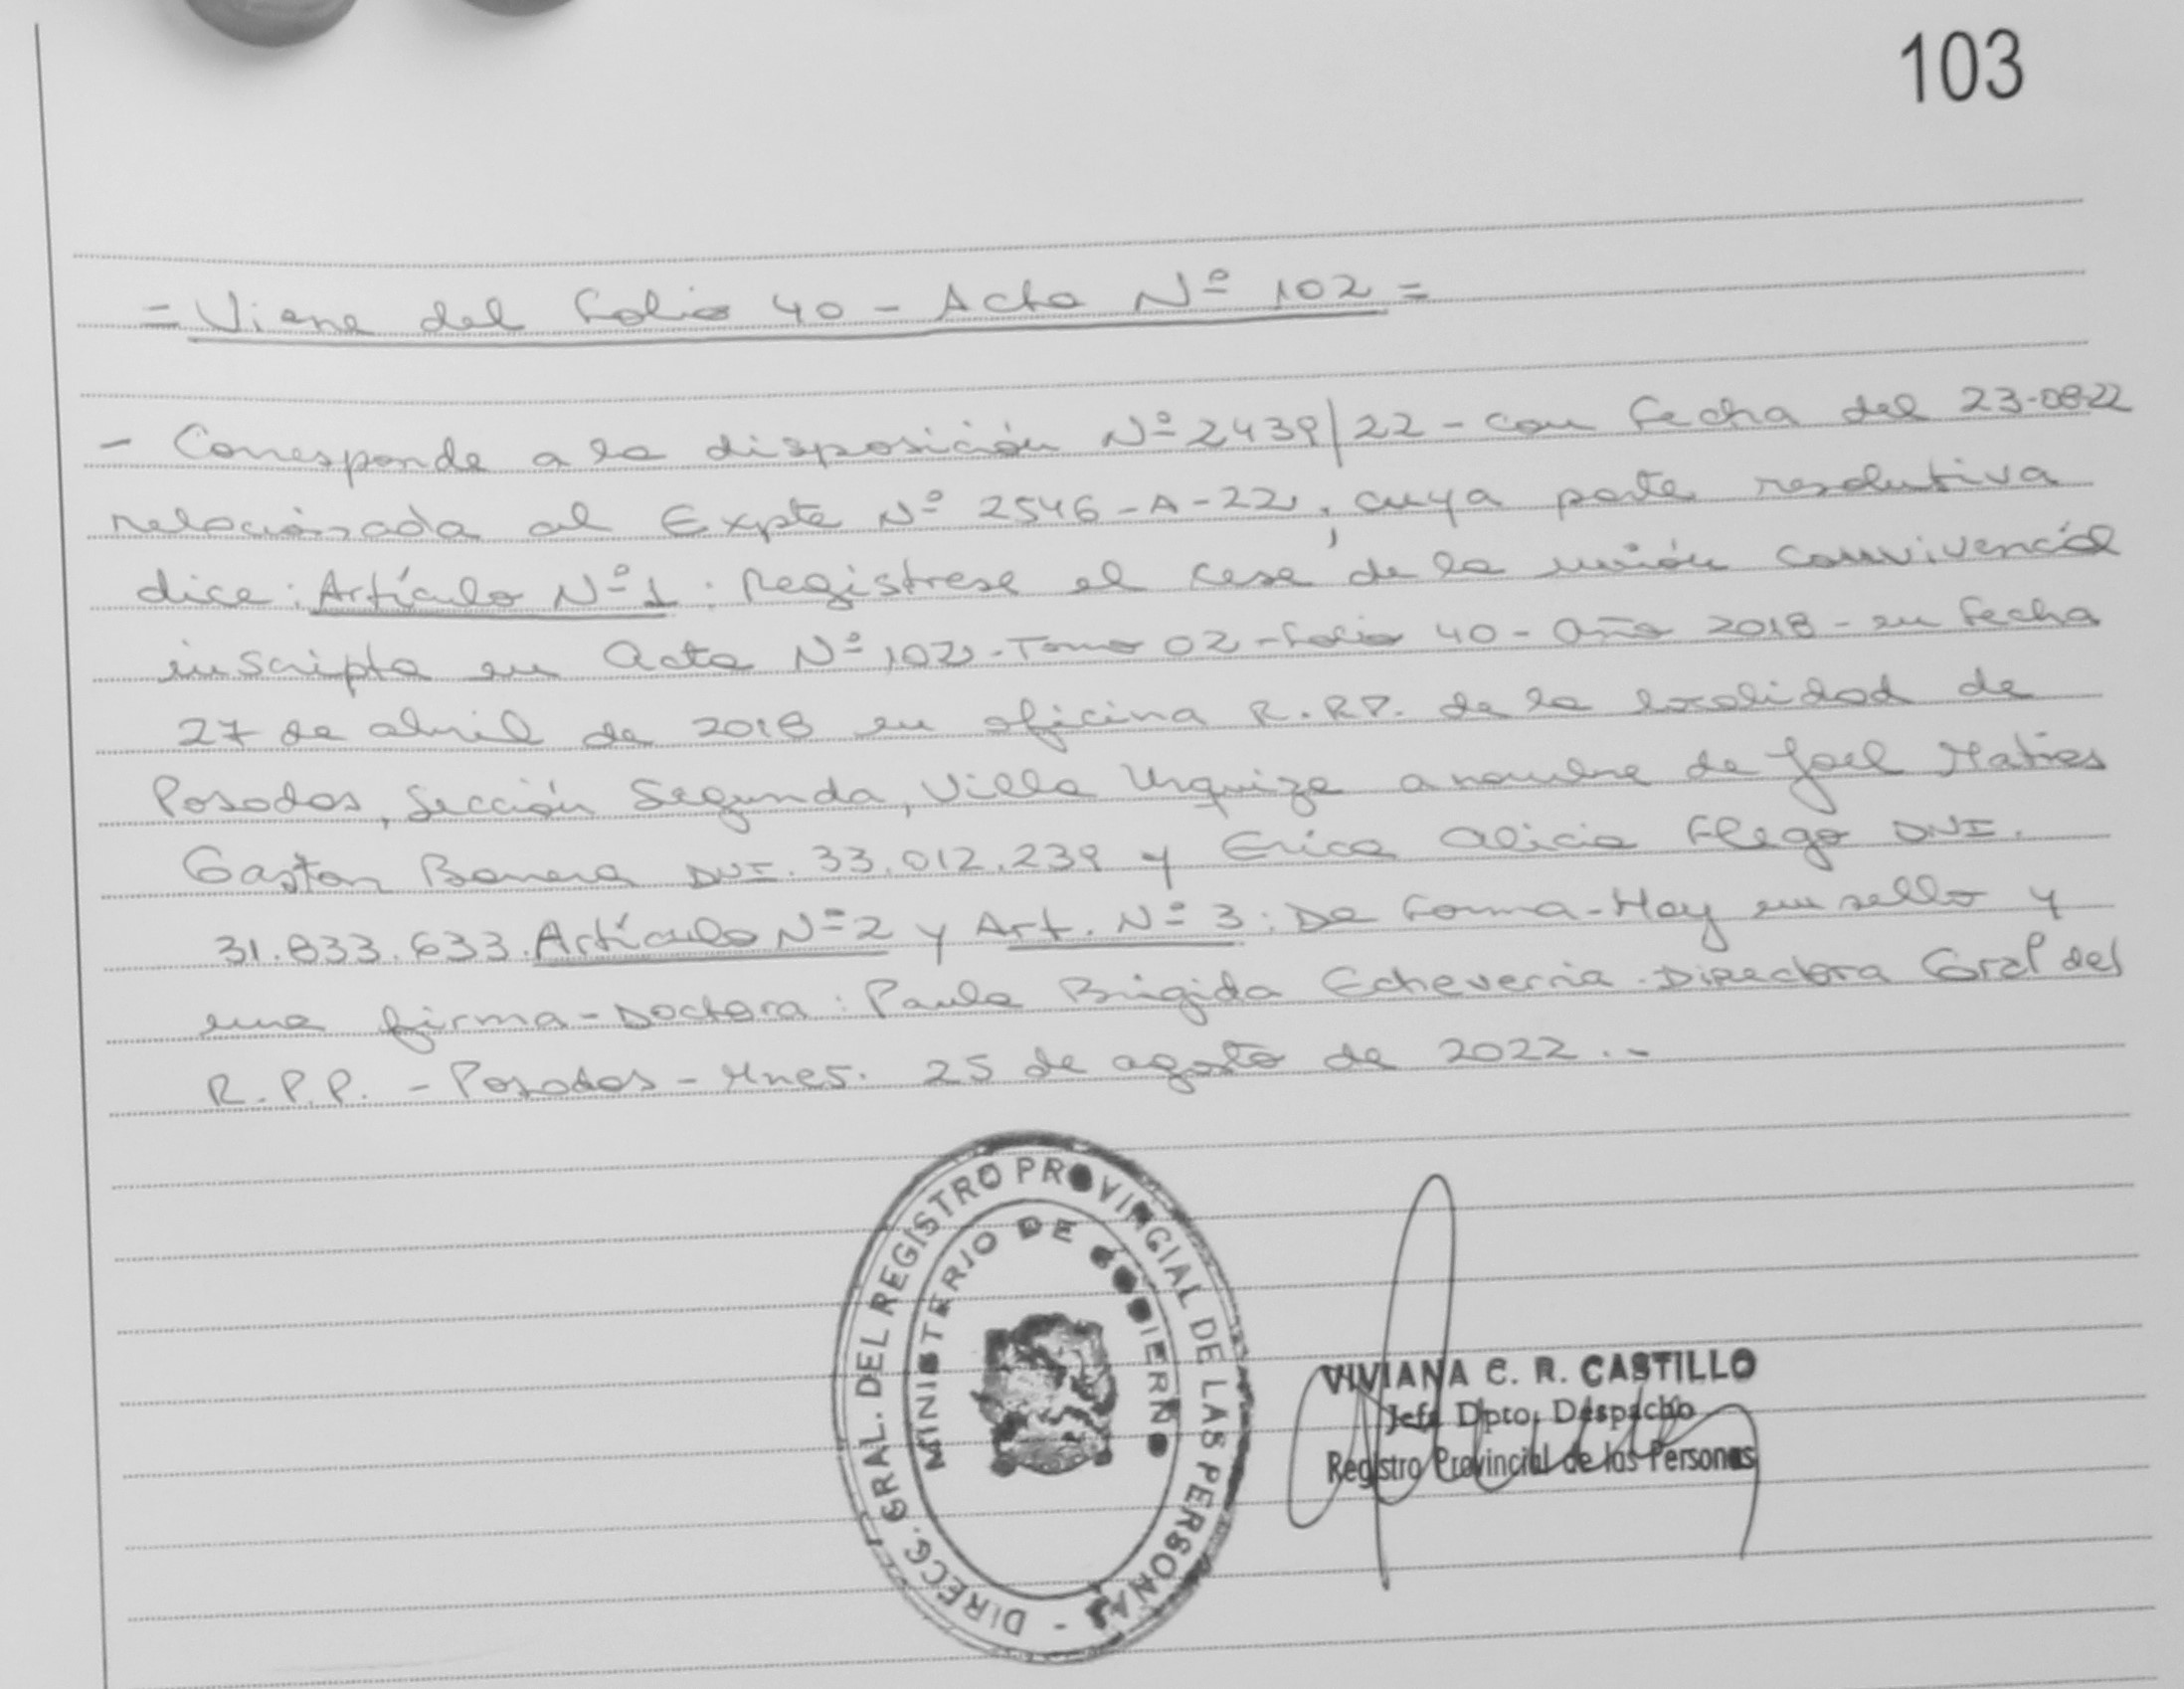 103
= Viene del Folio 40 - Acta Nº 102 =
- Corresponde a la disposición Nº 2439/22 - con fecha del 23-08-22
relacionada al Expte Nº 2546-A-22, cuya parte resolutiva
dice: Artículo Nº 1: Regístrese el cese de la unión convivencial
inscripta en Acta Nº 102 - Tomo 02 - Folio 40 - Año 2018 - en fecha
27 de abril de 2018 en oficina R.R.P. de la localidad de
Posadas, Sección Segunda, Villa Urquiza a nombre de Joel Matias
Gaston DNI. 33.012.239 y Erica Alicia Flego DNI.
31.833.633. Artículo Nº 2 y Art. Nº 3: De forma - Hay un sello y
una firma - Doctora: Paula Brigida Echeverria - Directora Gral del
R.P.P. - Posadas - Mnes. 25 de agosto de 2022.-
DIRECC. GRAL. DEL REGISTRO PROVINCIAL DE LAS PERSONAS -
MINISTERIO DE GOBIERNO
VIVIANA C. R. CASTILLO
Jefa Dpto. Despacho
Registro Provincial de las Personas